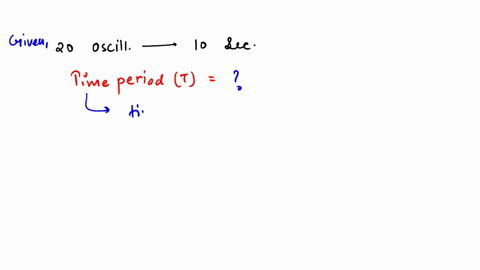 Given, 20 oscill. —— 10 sec.
Time period (T) = ?
↳ ti.